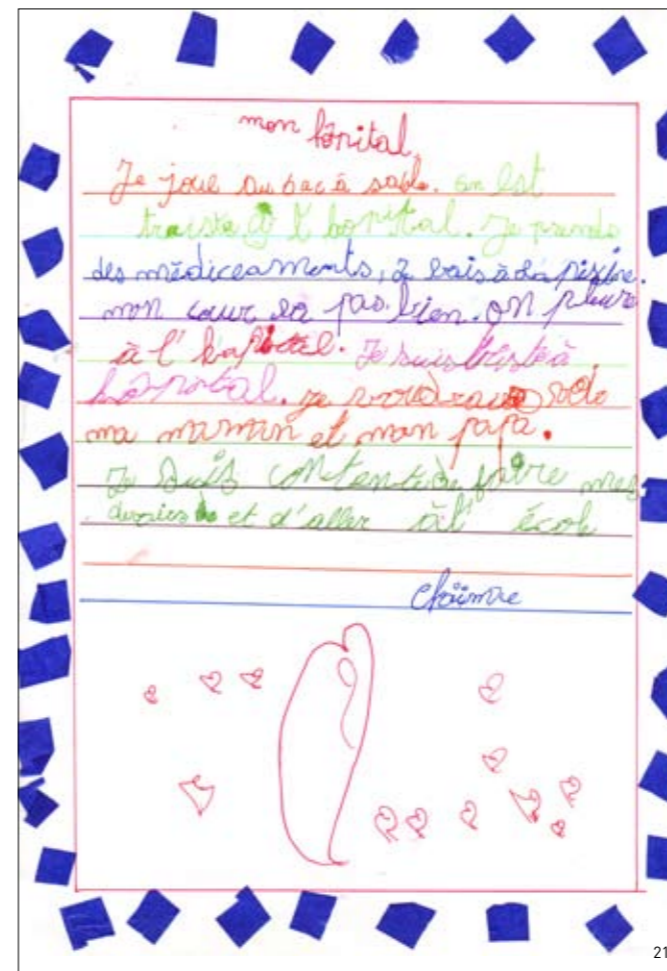 mon hôpital
Je joue au bac à sable. on est
traiste à l' hopital. Je prends
des médiceaments, Je vais à la piscine.
mon cœur va pas bien. on pleure
à l' hapital. Je suis triste à
hôpital. je voudrais
ma maman et mon papa.
Je suis contente de faire mes
devoirs et d'aller à l' écol
21